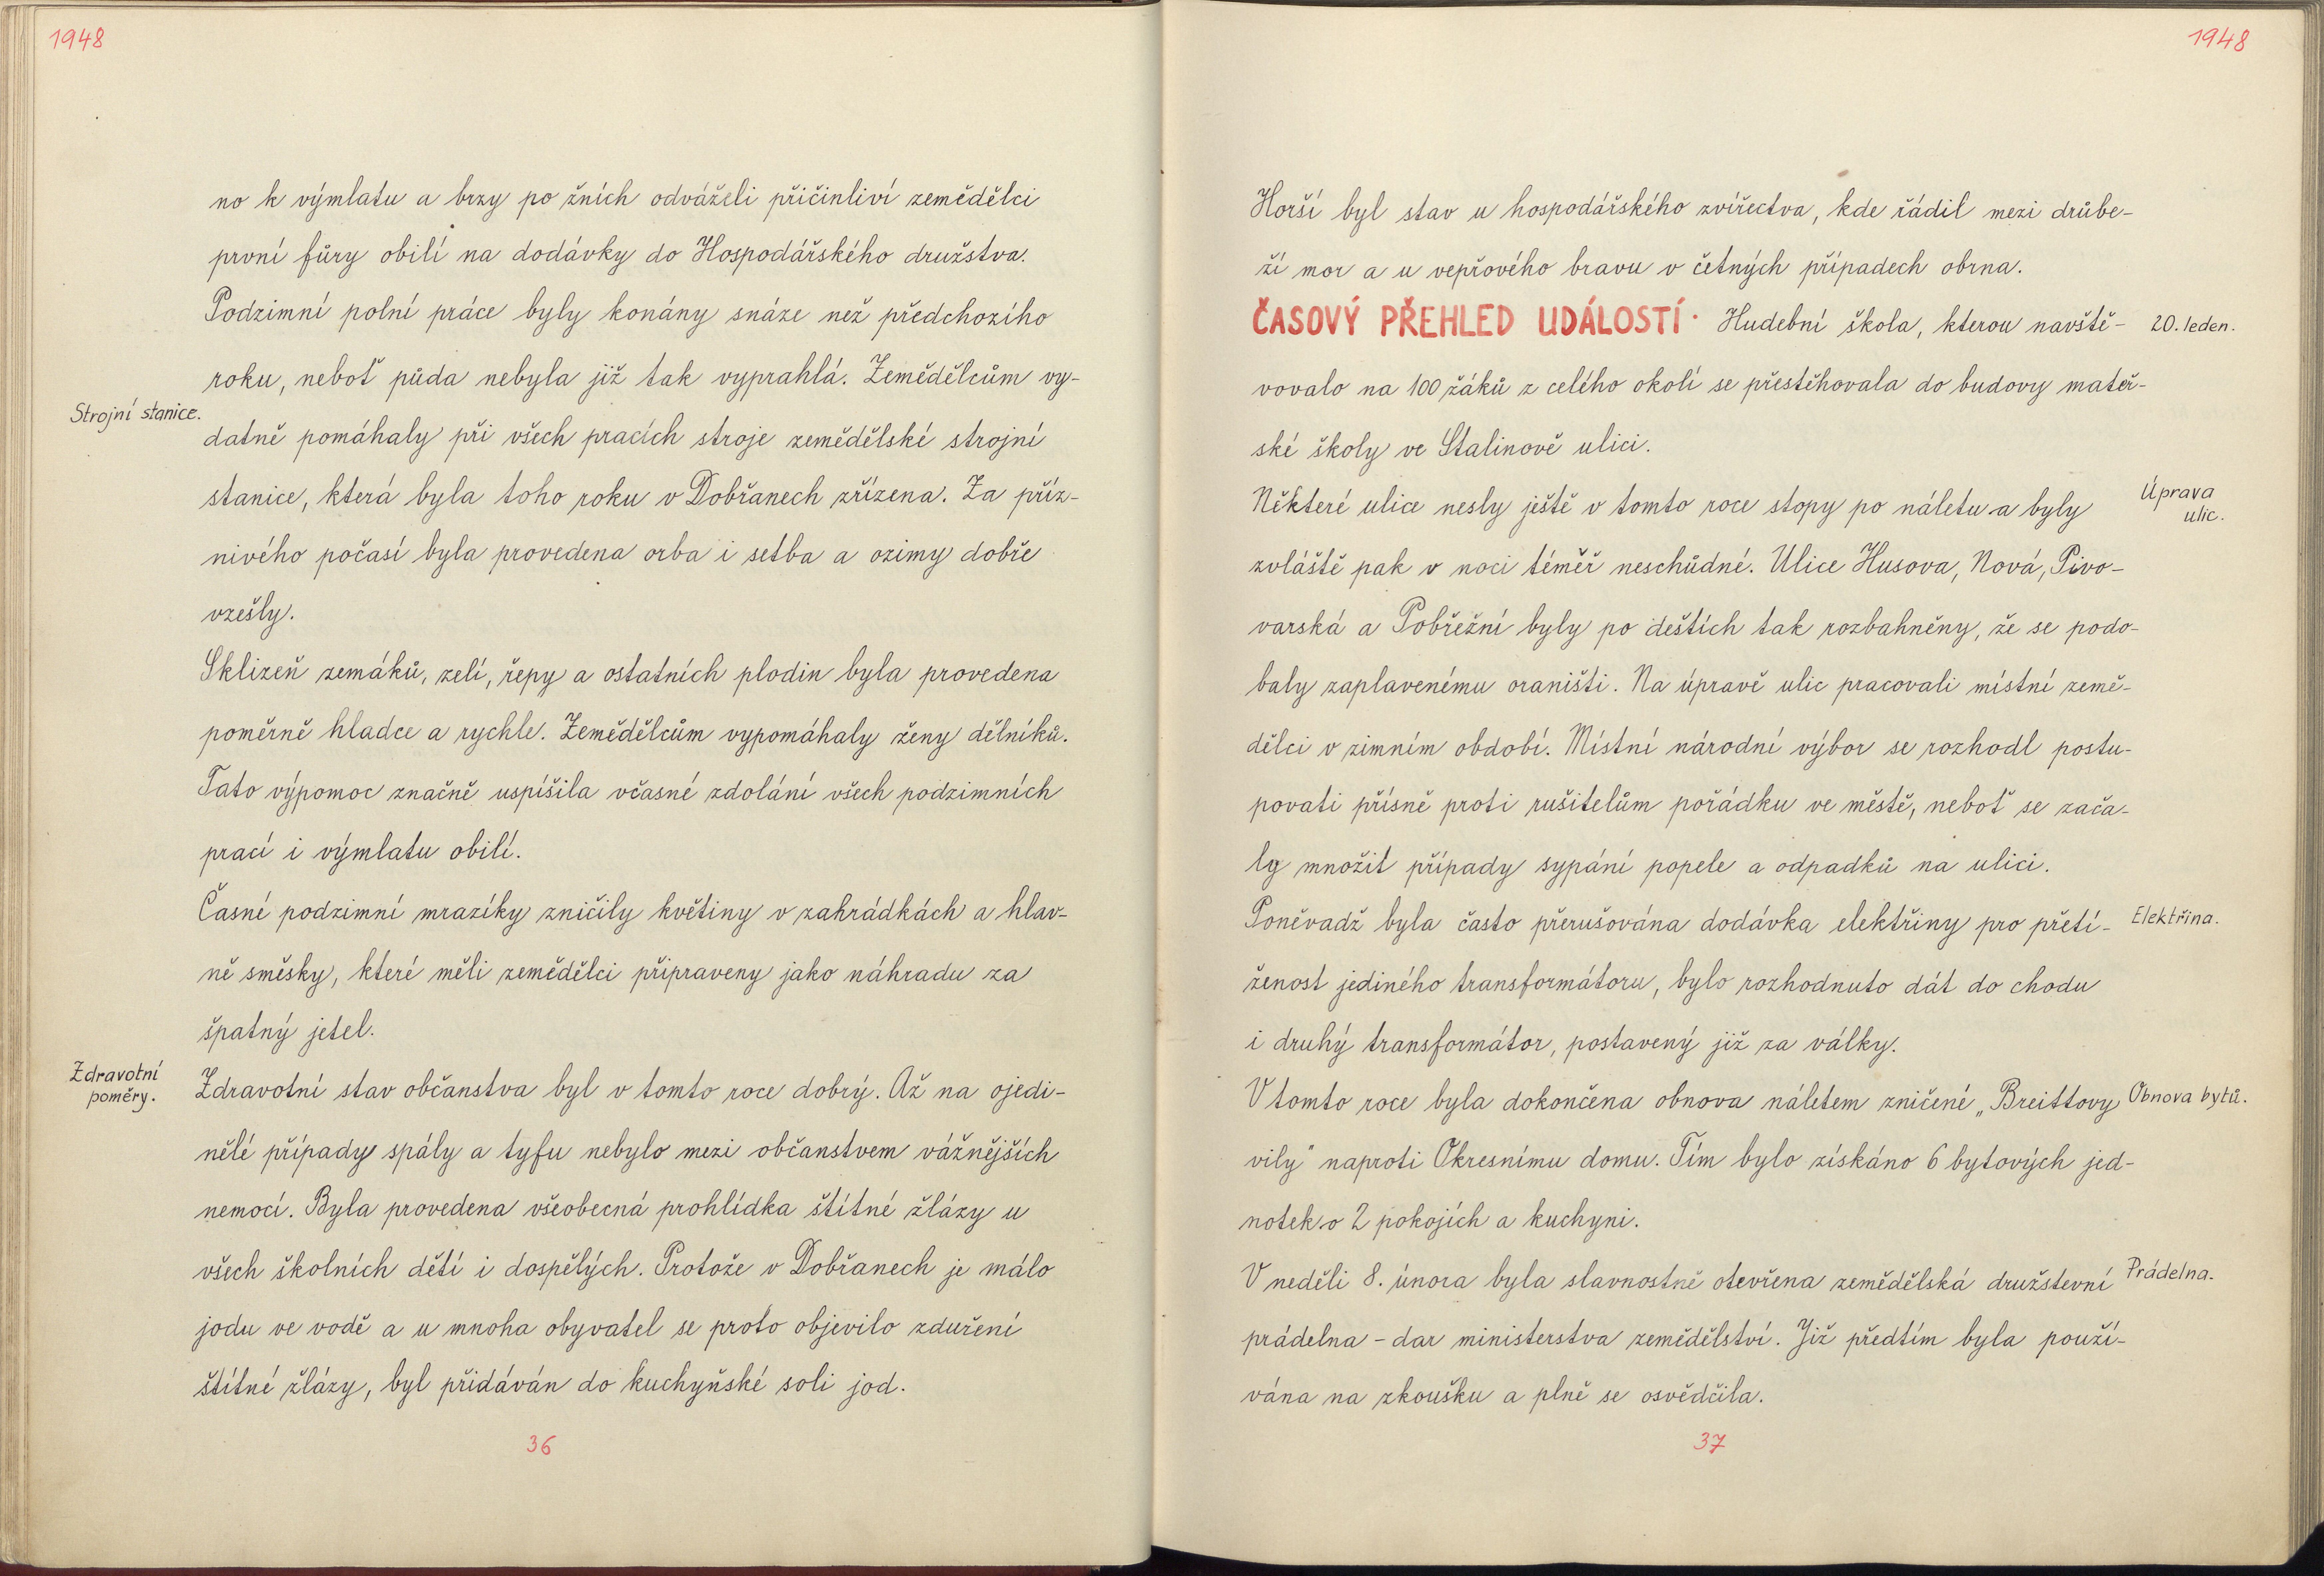 1948
no k výmlatu a brzy po žních odváželi přičinliví zemědělci
první fůry obilí na dodávky do Hospodářského družstva.
Podzimní polní práce byly konány snáze než předchozího
roku, neboť půda nebyla již tak vyprahlá. Zemědělcům vy-
Strojní stanice.
datně pomáhaly při všech pracích stroje zemědělské strojní
stanice, která byla toho roku v Dobřanech zřízena. Za příz-
nivého počasí byla provedena orba i setba a ozimy dobře
vzešly.
Sklizeň zemáků, zelí, řepy a ostatních plodin byla provedena
poměrně hladce a rychle. Zemědělcům vypomáhaly ženy dělníků.
Tato výpomoc značně uspíšila včasné zdolání všech podzimních
prací i výmlatu obilí.
Časné podzimní mrazíky zničily květiny v zahrádkách a hlav-
ně směsky, které měli zemědělci připraveny jako náhradu za
špatný jetel.
Zdravotní
poměry.
Zdravotní stav občanstva byl v tomto roce dobrý. Až na ojedi-
nělé případy spály a tyfu nebylo mezi občanstvem vážnějších
nemocí. Byla provedena všeobecná prohlídka štítné žlázy u
všech školních dětí i dospělých. Protože v Dobřanech je málo
jodu ve vodě a u mnoha obyvatel se proto objevilo zduření
štítné žlázy, byl přidáván do kuchyňské soli jod.
36
1948
Horší byl stav u hospodářského zvířectva, kde řádil mezi drůbe-
ží mor a u vepřového bravu v četných případech obrna.
ČASOVÝ PŘEHLED UDÁLOSTÍ. Hudební škola, kterou navště-
20. leden.
vovalo na 100 žáků z celého okolí se přestěhovala do budovy mateř-
ské školy ve Stalinově ulici.
Některé ulice nesly ještě v tomto roce stopy po náletu a byly
Úprava
ulic.
zvláště pak v noci téměř neschůdné. Ulice Husova, Nová, Pivo-
varská a Pobřežní byly po deštích tak rozbahněny, že se podo-
baly zaplavenému oraništi. Na úpravě ulic pracovali místní země-
dělci v zimním období. Místní národní výbor se rozhodl postu-
povati přísně proti rušitelům pořádku ve městě, neboť se zača-
ly množit případy sypání popele a odpadků na ulici.
Poněvadž byla často přerušována dodávka elektřiny pro přetí-
Elektřina.
ženost jediného transformátoru, bylo rozhodnuto dát do chodu
i druhý transformátor, postavený již za války.
V tomto roce byla dokončena obnova náletem zničené „Breittovy
Obnova bytů.
vily" naproti Okresnímu domu. Tím bylo získáno 6 bytových jed-
notek o 2 pokojích a kuchyni.
V neděli 8. února byla slavnostně otevřena zemědělská družstevní
Prádelna.
prádelna - dar ministerstva zemědělství. Již předtím byla použí-
vána na zkoušku a plně se osvědčila.
37